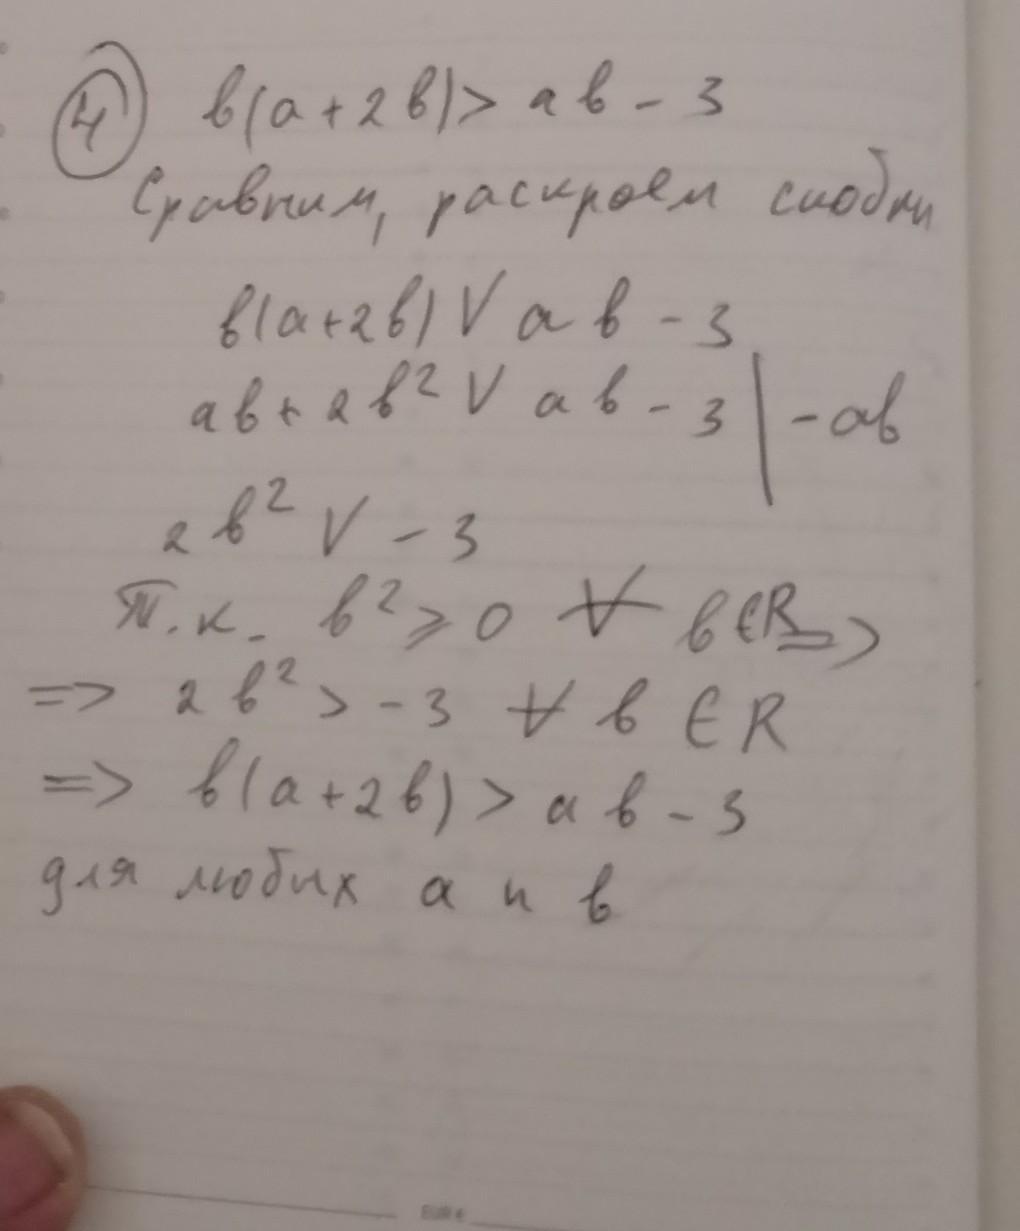 4 в(a+2в)> aв - 3
Сравним, раскроем скобки
в(a+2в) V aв - 3
aв + 2в² V aв - 3 | - aв
2в² V - 3
Т.к. в² ⩾ 0 ∀ в ∈ R =>
=> 2в² > - 3 ∀ в ∈ R
=> в(a+2в) > aв - 3
для любых a и в